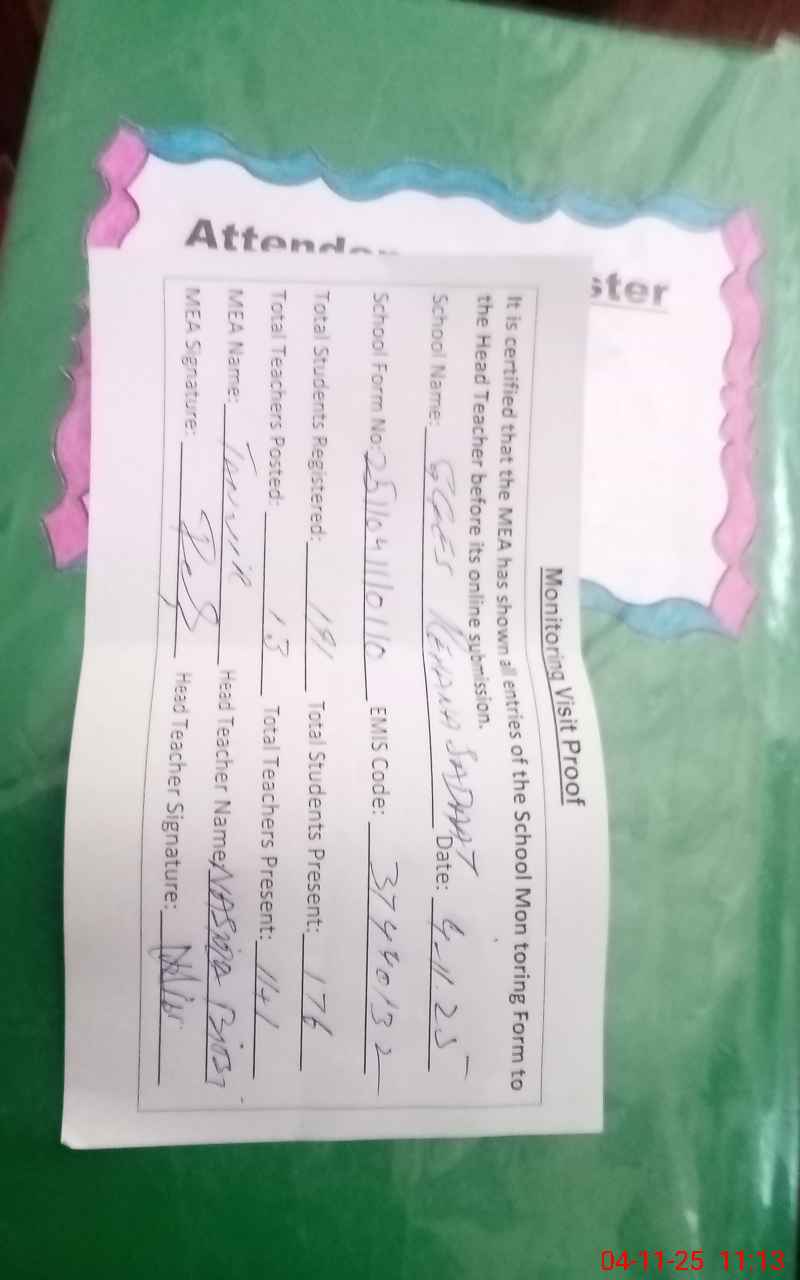 Attendance Register
Monitoring Visit Proof
It is certified that the MEA has shown all entries of the School Mon toring Form to
the Head Teacher before its online submission.
School Name: GGES Date: 4-11.25
School Form No: 251104110110 EMIS Code: 37440132
Total Students Registered: 191 Total Students Present: 176
Total Teachers Posted: 13 Total Teachers Present: 11+1
MEA Name: Tanvir Head Teacher Name: NASMA BiBi
MEA Signature: Head Teacher Signature:
04-11-25 11:13